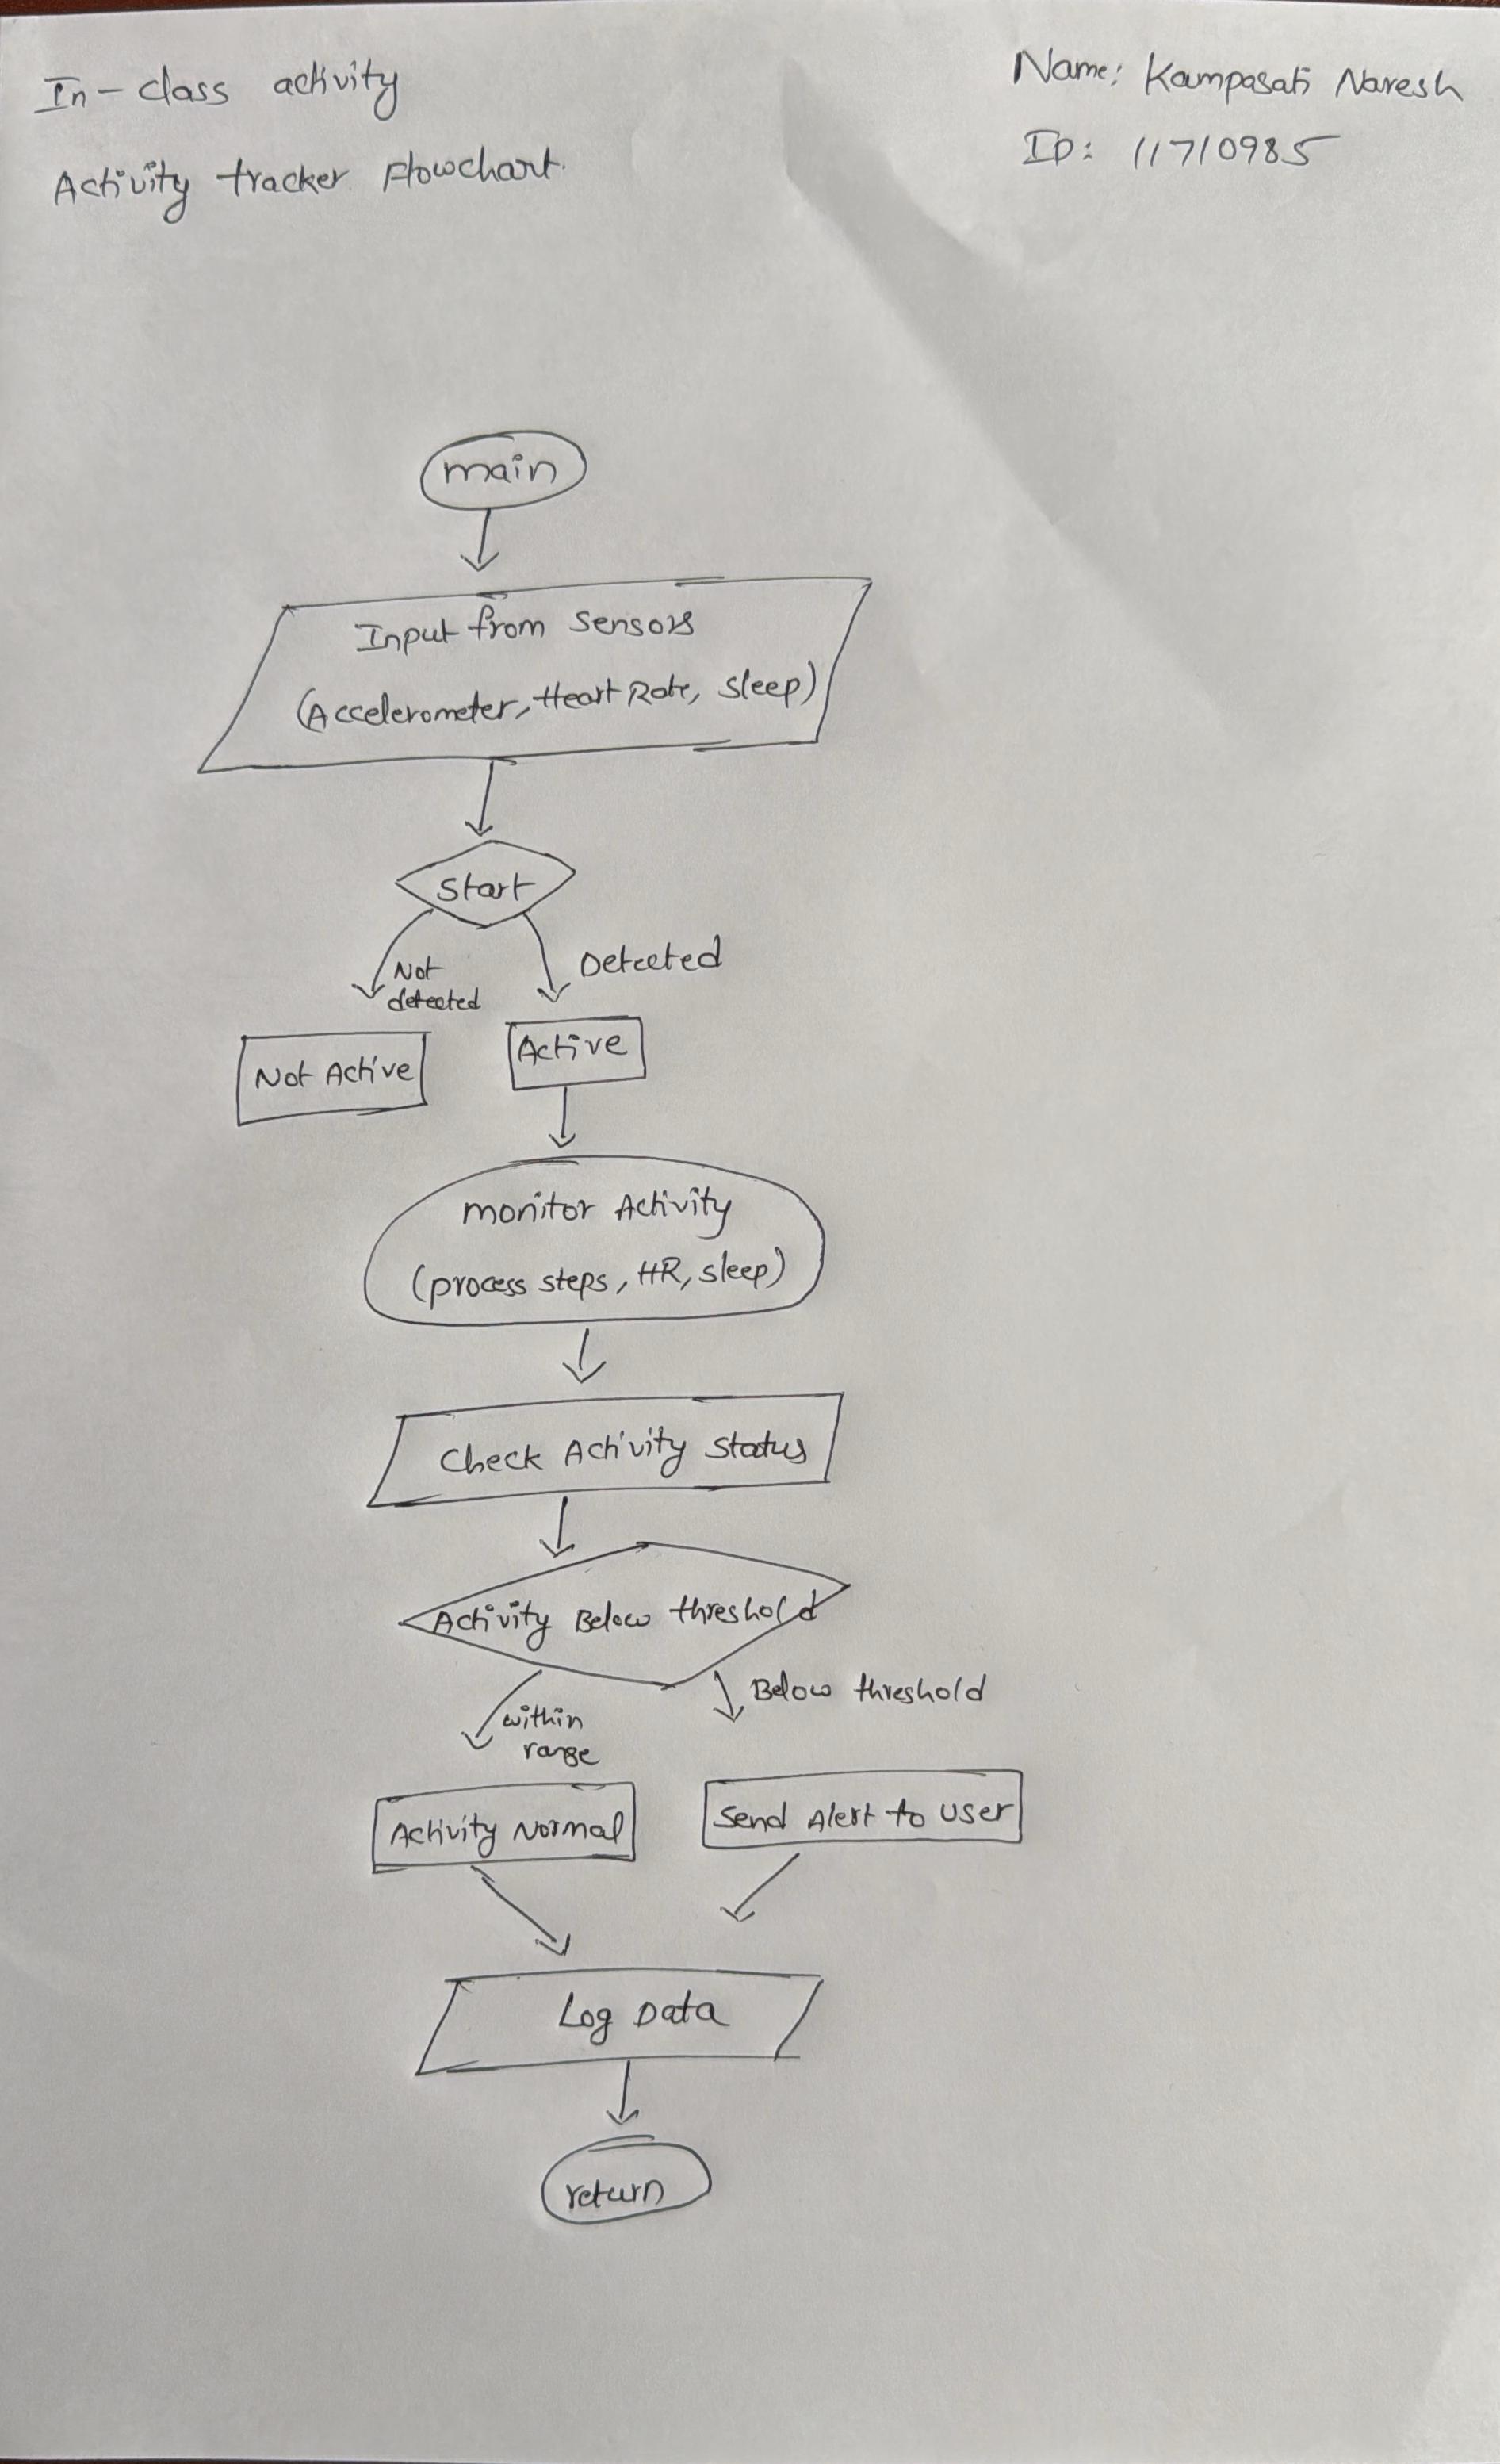 In-class activity
Name: Kampasati Naresh
Activity tracker flowchart.
ID: 11710985
main
Input from sensors
(Accelerometer, Heart Rate, sleep)
start
Not
detected
Detected
Not Active
Active
monitor Activity
(process steps, HR, sleep)
Check Activity status
Activity Below threshold
within
range
Below threshold
Activity Normal
Send Alert to user
Log Data
return